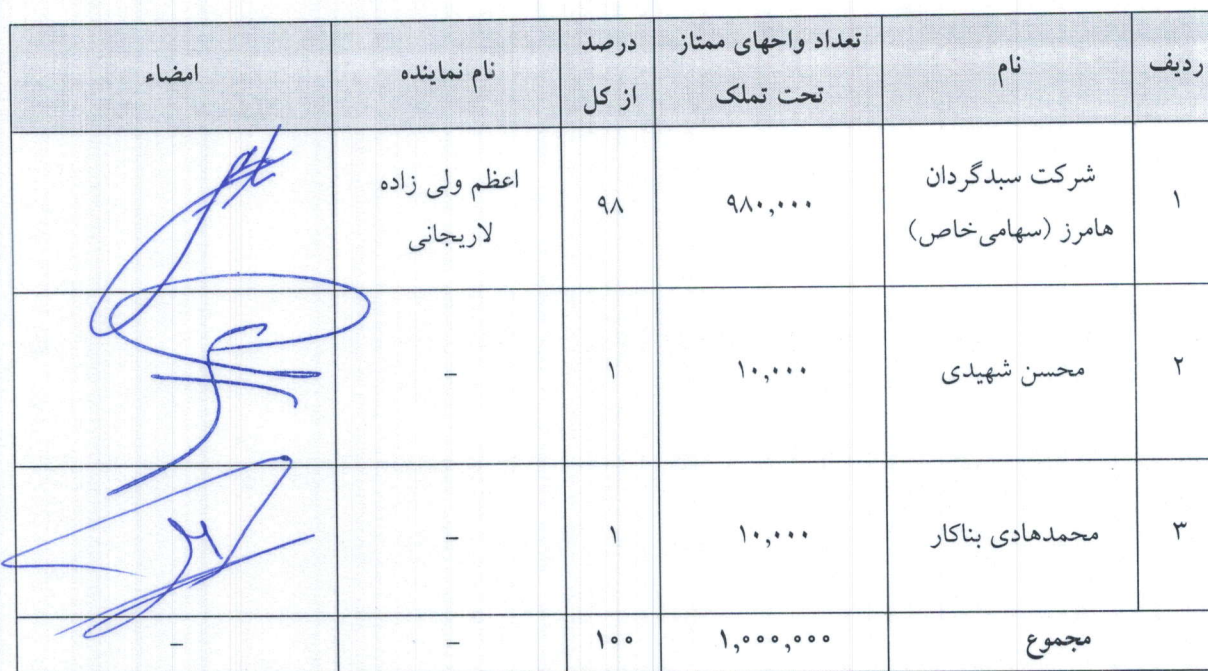 ردیف نام تعداد واحهای ممتاز تحت تملک درصد از کل نام نماینده امضاء
۱ شرکت سبدگردان هامرز (سهامی‌خاص) ۹۸۰,۰۰۰ ۹۸ اعظم ولی زاده لاریجانی
۲ محسن شهیدی ۱۰,۰۰۰ ۱ –
۳ محمدهادی بناکار ۱۰,۰۰۰ ۱ –
مجموع ۱,۰۰۰,۰۰۰ ۱۰۰ – –